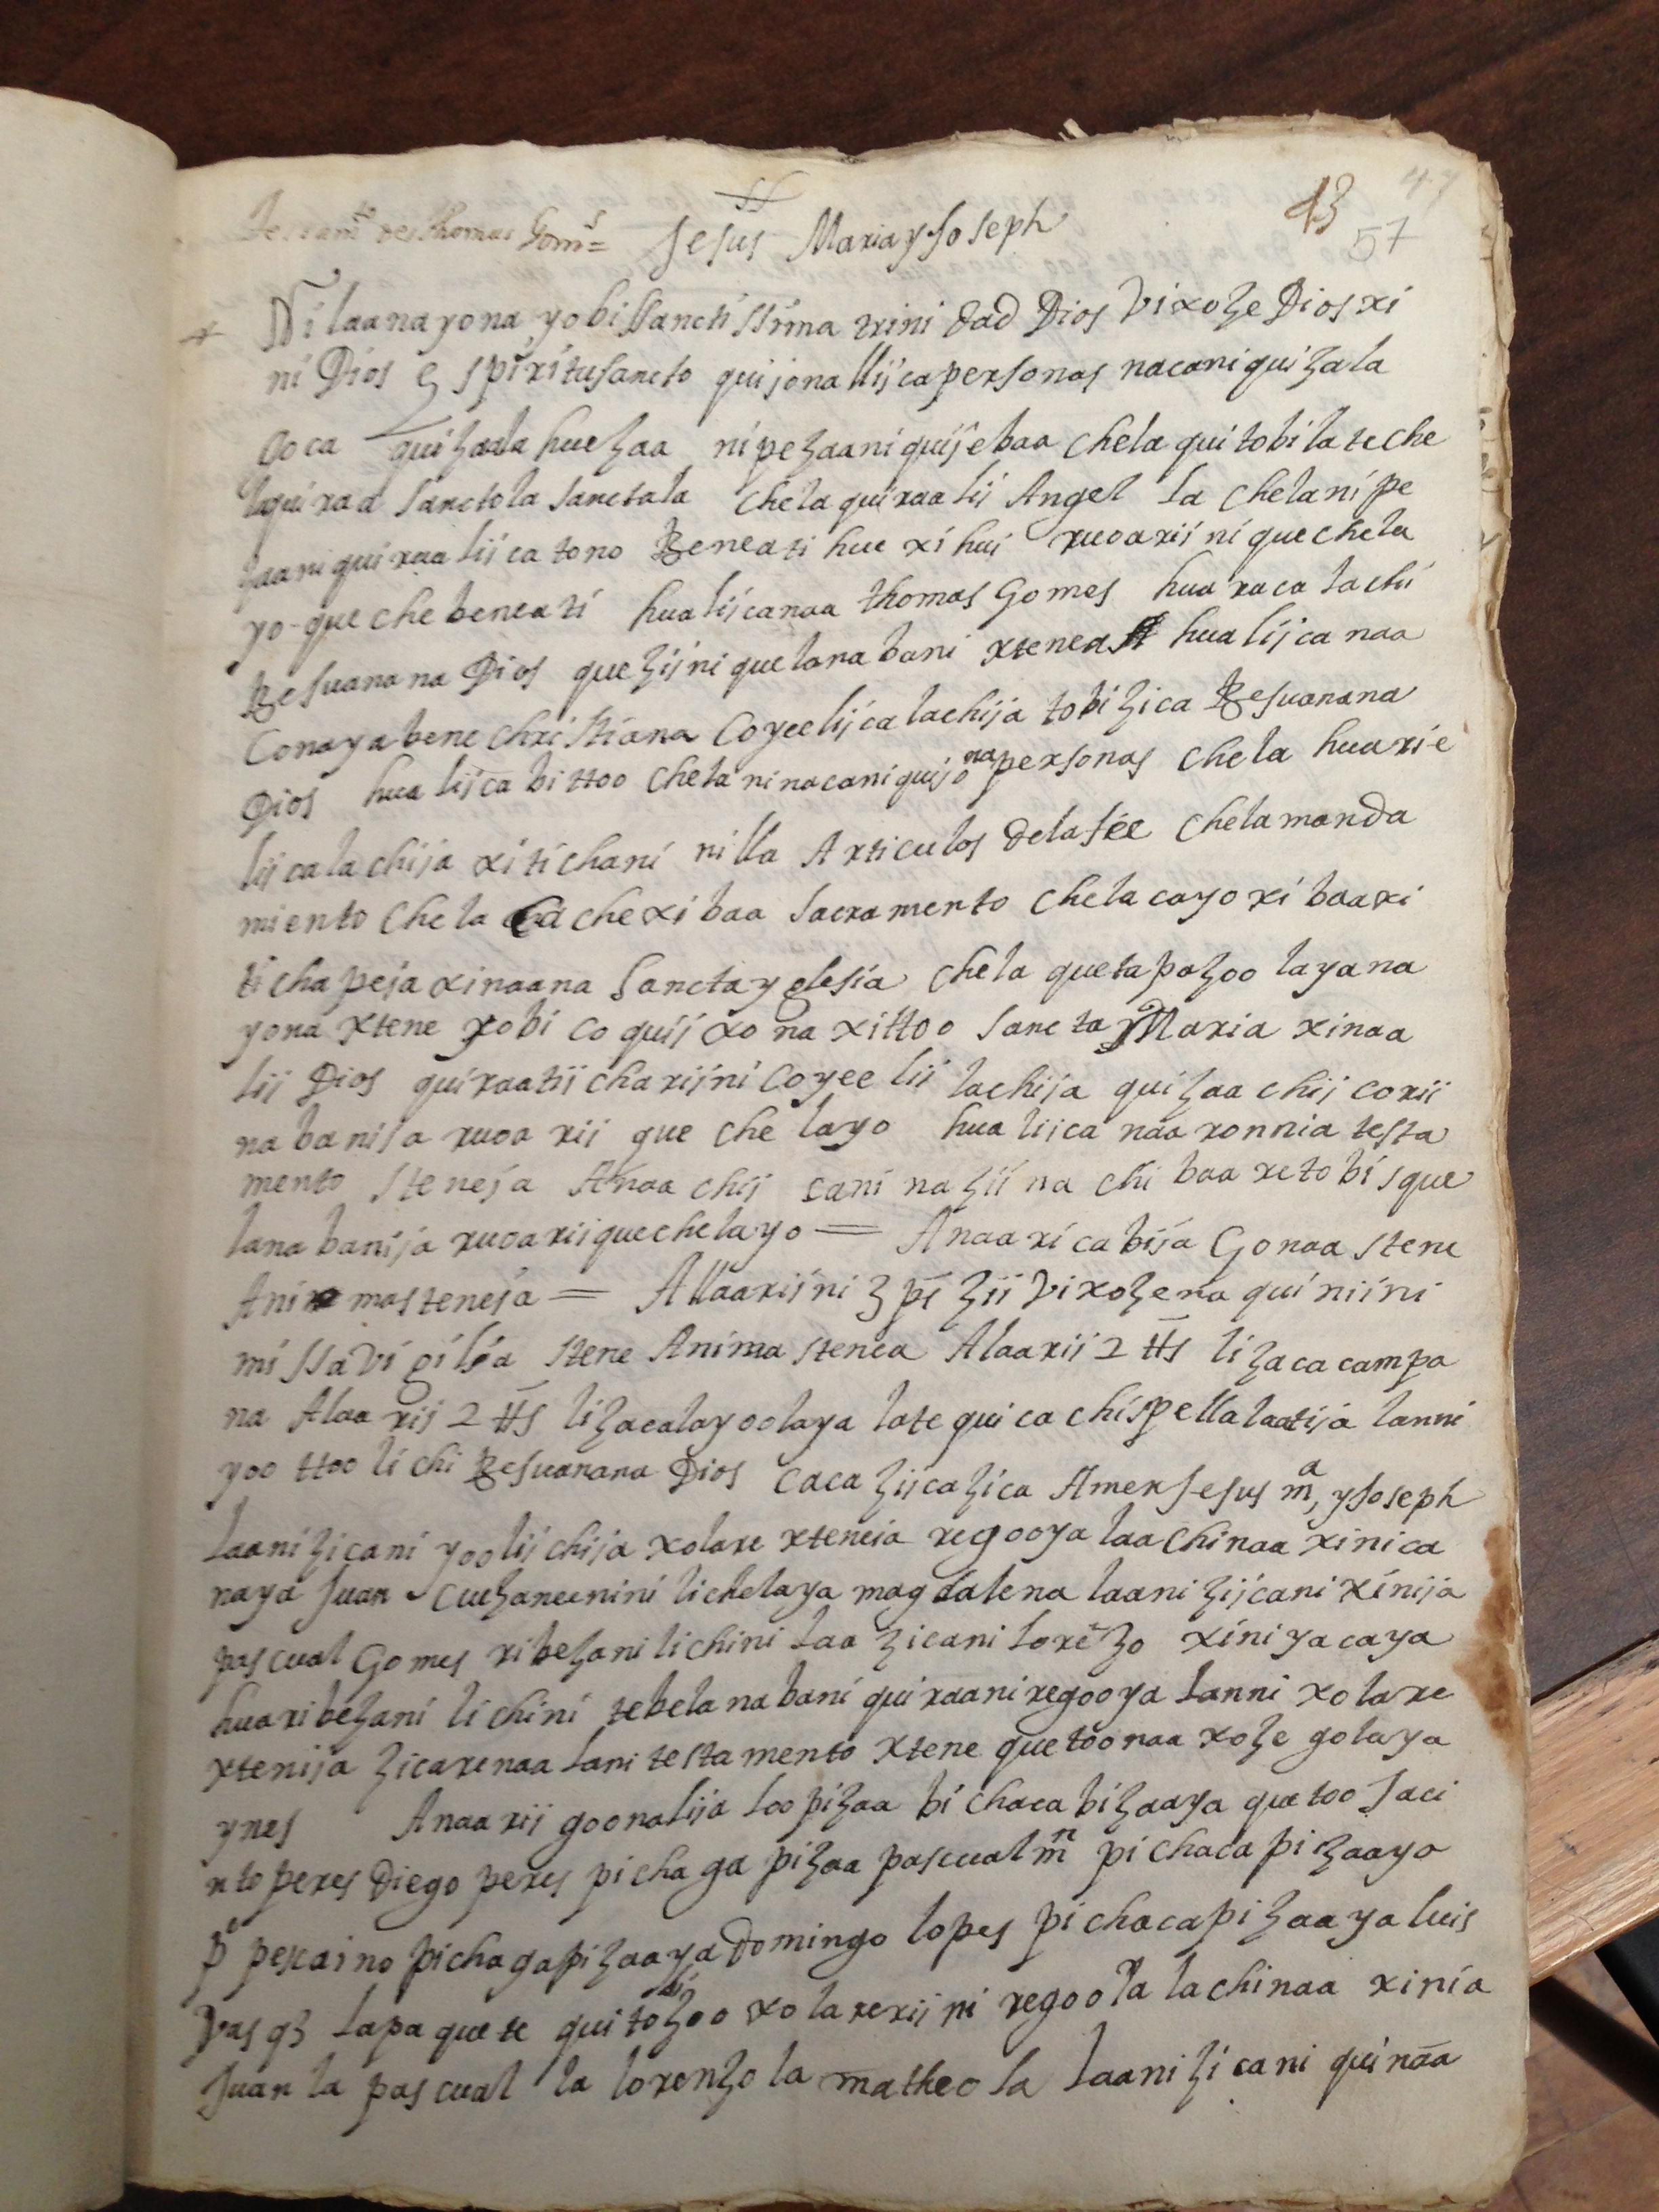 Testam^to de thomas Gom^s = Jesus Maria y Joseph 43 47 57
Ni laa na yona yobi ssanctissima trinidad Dios vixoze Dios xi
ni Dios espiritusancto quijona llijca personas nacani quizala
Ooca quizaala huezaa ni pezaani quijebaa chela qui tobi lateche
laqui raa sanctola sanctala chela quiraa lii Angel la chela ni pe
zaani quiraa liica tono Beneati hue xi hui ruoarii ni quechela
yo quechebeneati hualijcanaa thomas Gomes huaraca lachii
Besuanana Dios quezijni quelanabani xtenea hualijca naa
Conaya bene christiana Coyeelijca lachija tobizica Besuanana
Dios hualijca bittoo chela ni nacani quijona personas chela huarie
lijca lachija xitichani nilla Articulos delafee chela manda
miento chela cache xibaa sacramento chela cayo xibaa xi
ticha peja xinaana sancta yglesia chela quetapazoo layana
yona xtene xobi coquii xonaxittoo sancta Maria xinaa
lii Dios quiraatii charijni Coyee lii lachija quizaa chij corii
nabanija ruoarii que chelayo hualijca naa ronnia testa
mento stenesa Anaa chij cani nazii na chibaaxetobi sque
lanabanija ruoarii quechelayo = Anaa ricabija Gonaa stene
Animasteneja = Allaariini 3 p^s zii vixozena quiniini
missa vigilia stene Anima stenea Alaarii 2 tt^s lizaca campa
na Alaa rij 2 tt^s lizacalayoolaya late quica chispellalaatija lanni
yoo ttoo lichi Besuanana Dios caca ziicazica Amen Jesus m^a, y Joseph
Laanizicani yoolijchija xolare xteneia regooya laachinaa xinica
naya Juan cuezaneenini lichelaya magdalena laanizijcani xinija
pascual Gomes ribezani lichini Laa zicani Lorēzo xiniyacaya
huaribezani lichini tebelanabani quiraani regooya Lanni xolare
xtenija zicarenaa Lani testamento xtene quetoonaa xoze golaya
ynes Anaarij goonalija Loo pizaa bichaca bizaaya quetoo Jaci
nto peres Diego peres pichaga pizaa pascual m^n pichaca pizaayo
p^o pescaino pichagapizaaya Domingo lopes pichacapizaaya luis
vasq3 Lapaquete quitobizoo xolarerijni regoola lachinaa xinia
Juan la pascual la lorenzo la matheo la Laanizicani quinaa